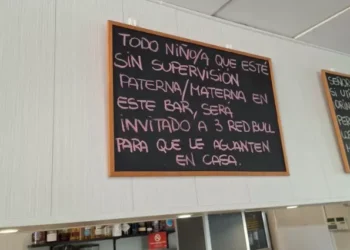 TODO NIÑO/A QUE ESTÉ
SIN SUPERVISIÓN
PATERNA/MATERNA EN
ESTE BAR, SERÁ
INVITADO A 3 RED BULL
PARA QUE LE AGUANTEN
EN CASA.
SEÑOR
SI UT